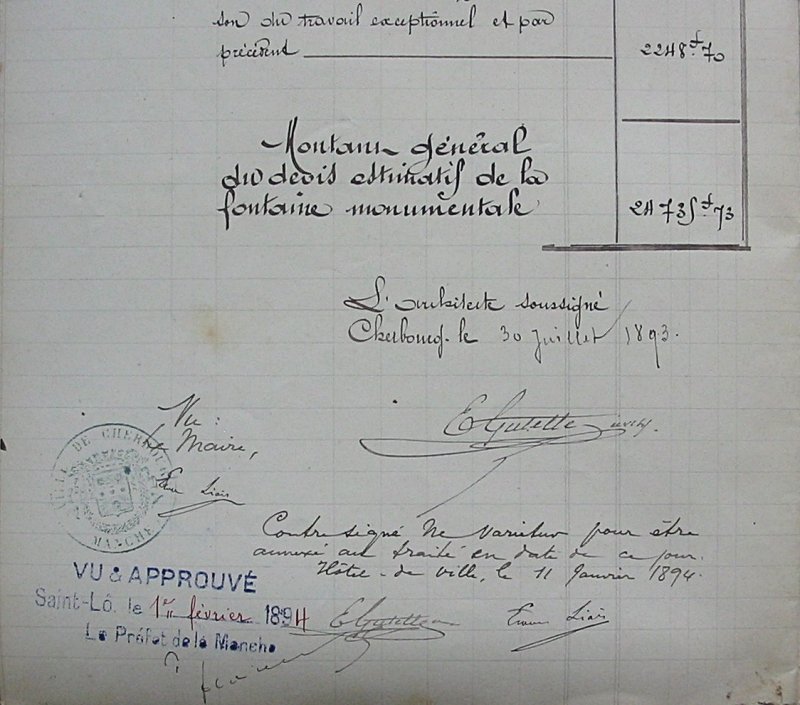 son du travail exceptionnel et par
précédent 2248f70
Montant général
du devis estimatif de la
fontaine monumentale 24735f73
L'architecte soussigné
Cherbourg. le 30 Juillet 1893.
Vu :
Le Maire,
VILLE DE CHERBOURG
MANCHE
Emm Liais
Contresigné Ne Varietur pour être
annexé au traité en date de ce jour.
Hôtel-de Ville, le 11 Janvier 1894.
VU & APPROUVÉ
Saint-Lô. le 1er février 1894
Le Préfet de la Manche
Emm Liais